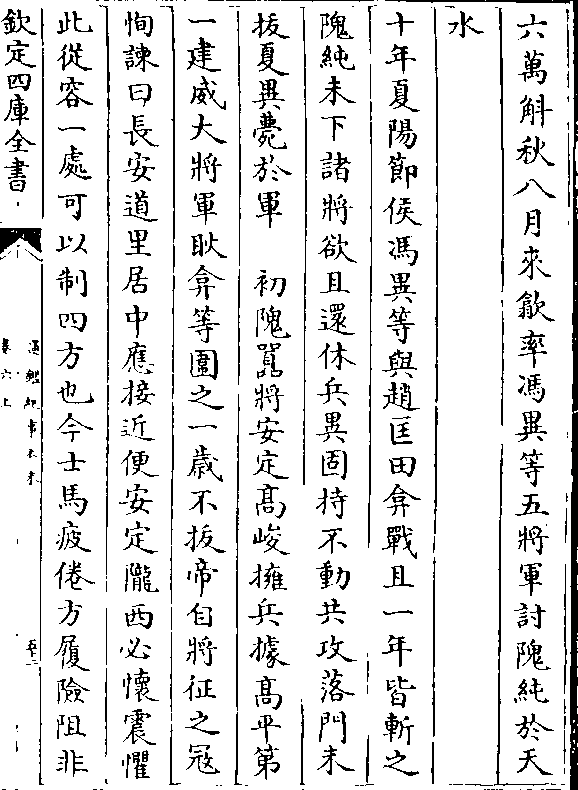 六萬斛秋八月來歙率馮異等五將軍討隗純於天
水
十年夏陽節侯馮異等與趙匡田弇戰且一年皆斬之
隗純未下諸將欲且還休兵異固持不動共攻落門未
拔夏異薨於軍　初隗囂將安定髙峻擁兵據髙平第
一建威大將軍耿弇等圍之一歳不拔帝自將征之冦
恂諫曰長安道里居中應接近便安定隴西必懷震懼
此從容一處可以制四方也今士馬疲倦方履險阻非
欽定四庫全書
通鑑紀事本末
卷六上